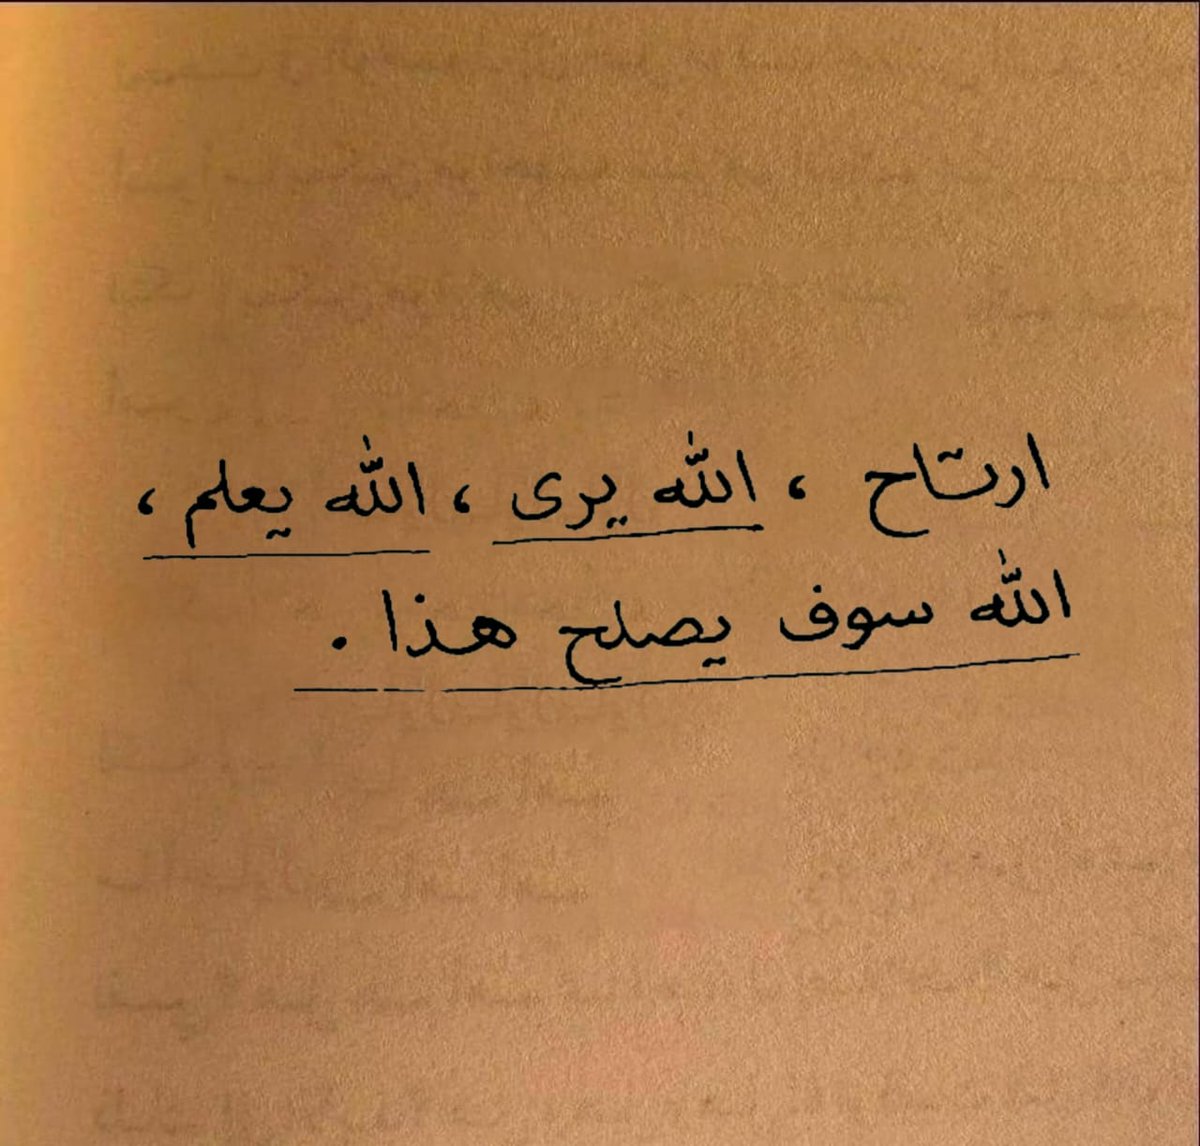 ارتاح ، الله يرى ، الله يعلم ،
الله سوف يصلح هذا .